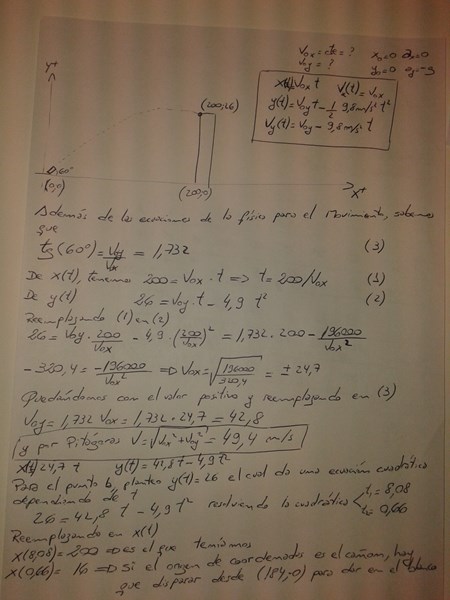 Vox = cte = ? x₀=0 ax=0
Voy = ? y₀=0 ay=-g
x(t)=Vox t Vx(t)=Vox
y(t)=Voy t - 1/2 9,8m/s² t²
Vy(t)=Voy - 9,8m/s² t
y+
(200,26)
60°
(0,0)
(200,0)
x+
Además de las ecuaciones de la física para el Movimiento, sabemos
que
tg(60°)=Voy/Vox = 1,732 (3)
De x(t), tenemos 200=Vox·t => t=200/Vox (1)
De y(t) 26=Voy·t - 4,9 t² (2)
Reemplazando (1) en (2)
26=Voy·200/Vox - 4,9·(200/Vox)² = 1,732·200 - 196000/Vox²
-320,4 = -196000/Vox² => Vox=√(196000/320,4) = ± 24,7
Quedándonos con el valor positivo y reemplazando en (3)
Voy=1,732 Vox=1,732·24,7=42,8
y por Pitágoras V=√(Vx²+Vy²) = 49,4 m/s
x(t)=24,7 t y(t)=42,8t-4,9t²
Para el punto b, planteo y(t)=26 el cual da una ecuación cuadrática
dependiendo de t
26=42,8 t - 4,9 t² resolviendo la cuadrática t₁=8,08
t₂=0,66
Reemplazando en x(t)
x(8,08)=200 => es el que teníamos
x(0,66)=16 => Si el origen de coordenadas es el cañón, hay
que disparar desde (184,0) para dar en el blanco